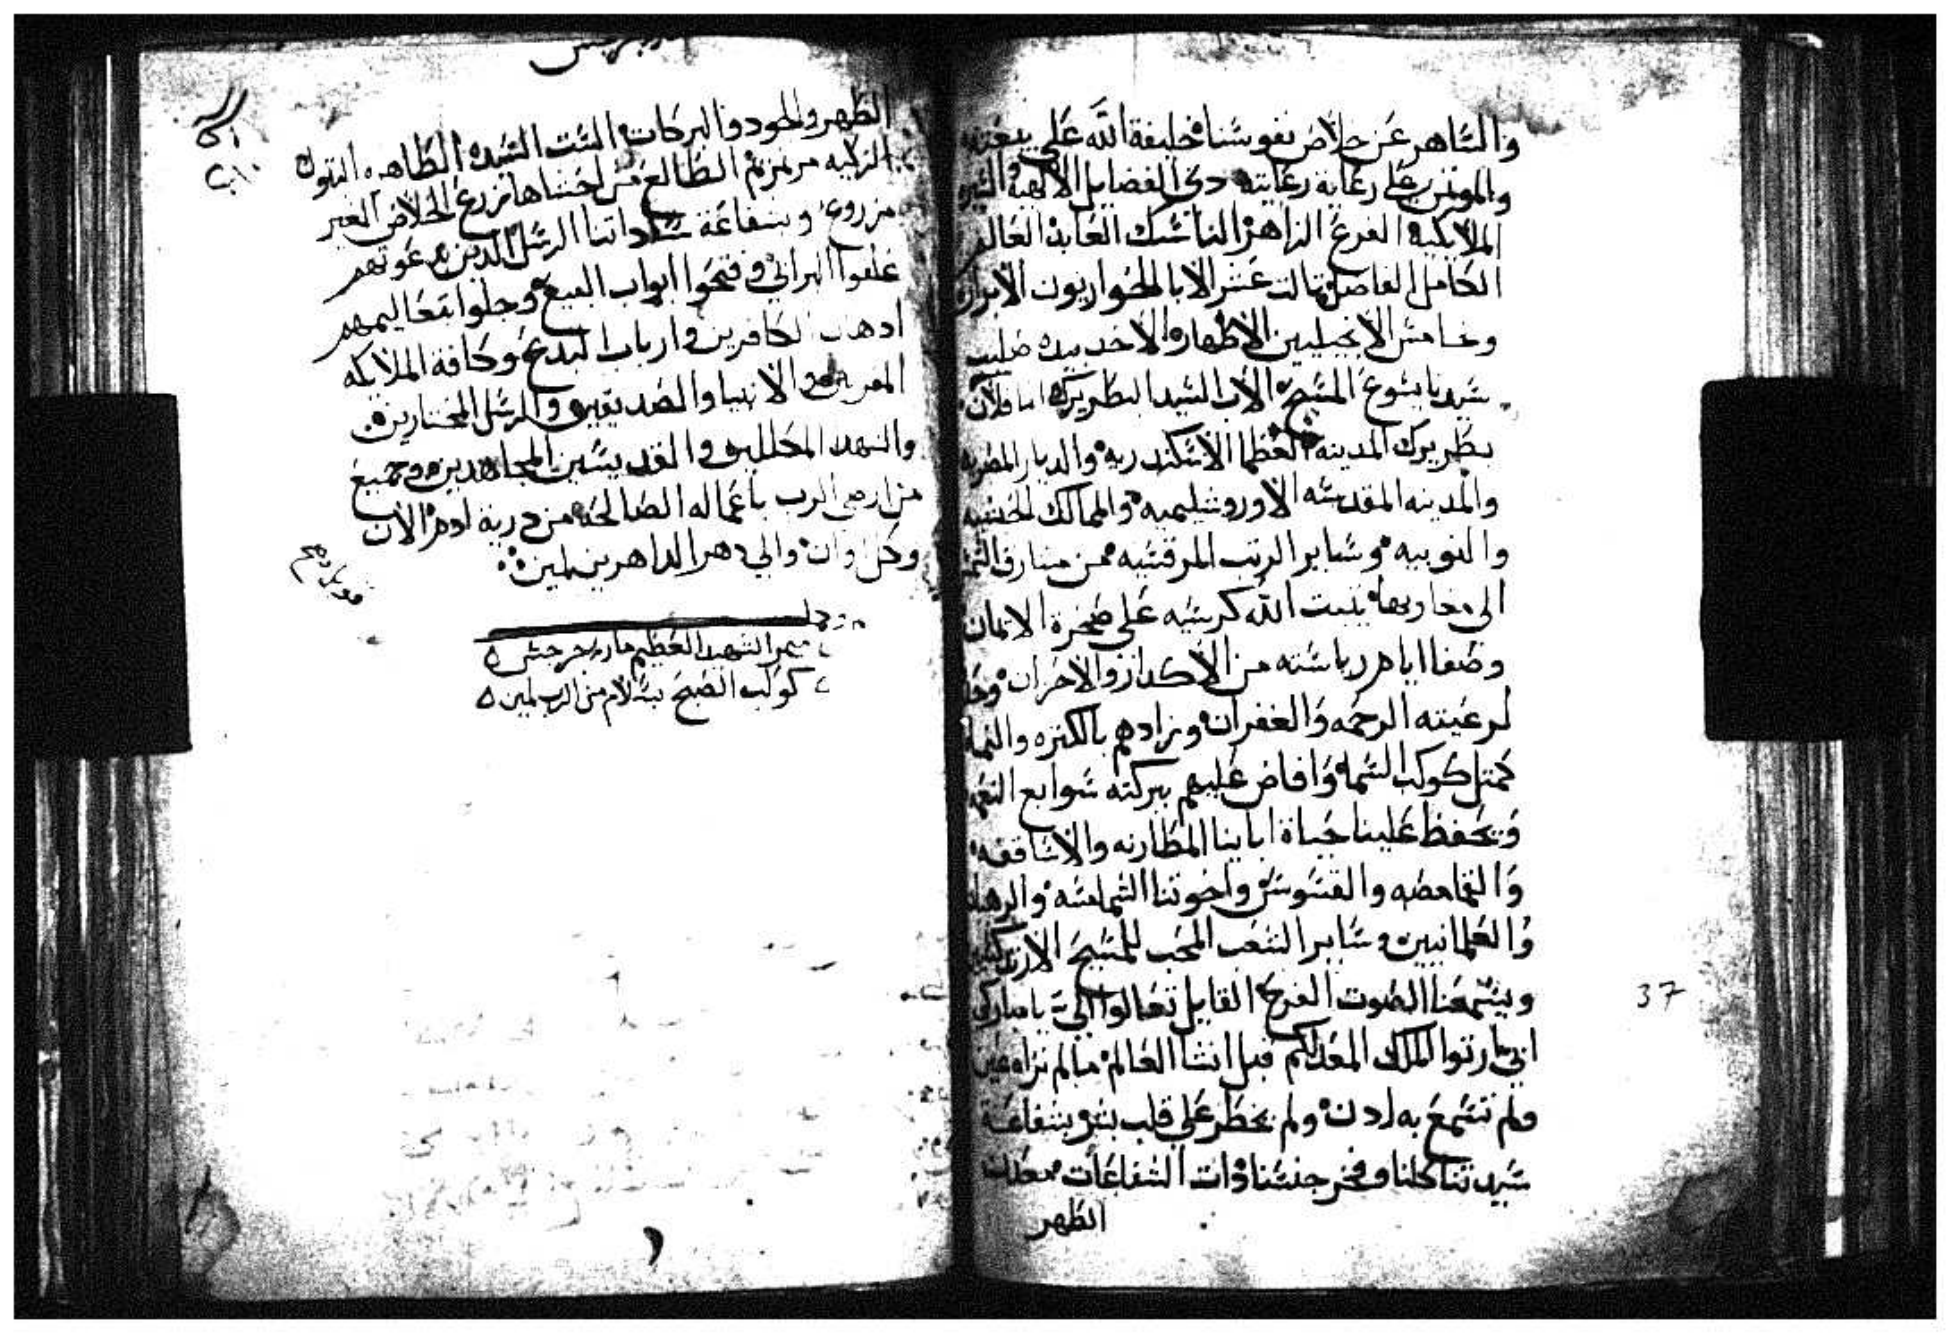 والساهر عن خلاص نفوسنا خليفة الله علي بيعته
والموتمن علي رعاية رعايته دي الفضايل الالهيه
الملايكيه الفرع الزاهر الناسك العابد العالم
الكامل الفاضل تالت عشر الابا الحواريون الابرار
وخامس الانجيليين الاطهار والاخد بيده صليب
سيدنا يسوع المسيح الاب السيد البطريرك انبا فلان
بطريرك المدينه العظما الاسكندريه والديار المصريه
والمدينه المقدسه الاوروشليميه والممالك الحبشيه
والنوبيه وساير الرتب المرقسيه من مشارق
الي مغاربها يتبت الله كرسيه علي صخرة الايمان
وصفا ايام رياسته من الاكدار والاحزان
لرعيته الرحمه والغفران وزادهم بالكتره والنما
كمتل كوكب السما وافاض عليهم ببركته سوابع النعم
ويحفظ علينا حياة اباينا المطارنه والاساقفه
والقمامصه والقسوس واخوتنا الشمامسه
والعلمانيين وساير الشعب المحب للمسيح
ويسمعنا الصوت الفرح القايل تعالوا الي يا مباركي
ابي ارتوا الملك المعد لكم قبل انشا العالم مالم تراه عين
ولم تسمع به ادن ولم يخطر علي قلب بشر بشفاعة
سيدتنا كلنا وفخر جنسنا دات الشفاعات معدن
الطهر
الطهر والجود والبركات الست السيده الطاهره البتول
الزكيه مرتمريم الطالع من احشاها زرع الخلاص الغير
مزروع وبشفاعة ساداتنا الرسل الدين بدعوتهم
غلقوا البرابي وفتحوا ابواب البيع وجلوا بتعاليمهم
ادهان الكافرين وارباب البدع وكافة الملايكه
المقربين والانبيا والصديقين والرسل المختارين
والشهدا المكللين والقديسين المجاهدين وجميع
من ارضي الرب باعماله الصالحه من درية ادم الان
وكل اوان والي دهر الداهرين امين
ميمر الشهيد العظيم مار جرجس
كوكب الصبح بسلام من الرب امين
37